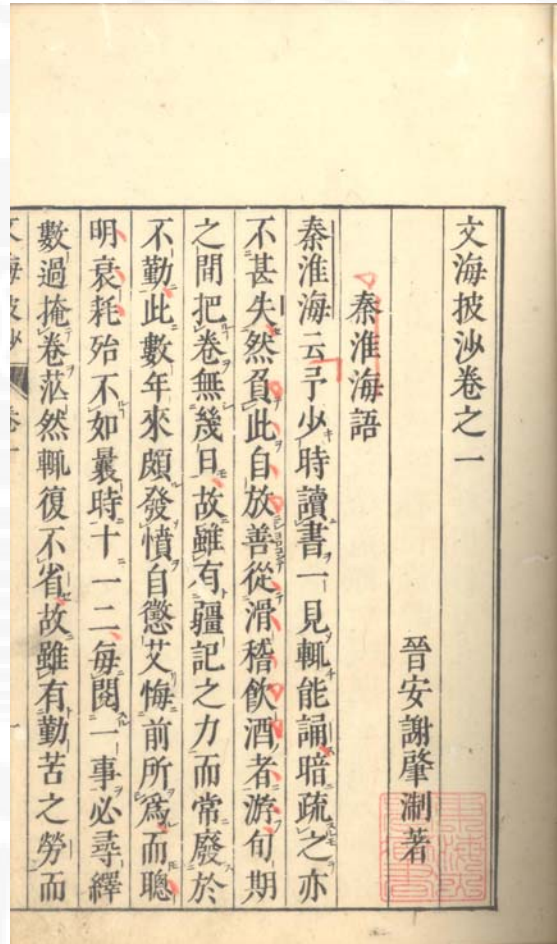 文海披沙卷之一
晉安謝肇淛著
秦淮海語
秦淮海云予少時讀書一見輙能誦暗疏之亦
不甚失然負此自放善從滑稽飲酒者游旬期
之間把卷無幾日故雖有疆記之力而常廢於
不勤此數年來頗發憤自懲艾悔前所爲而聰
明衰耗殆不如曩時十一二每閱一事必尋繹
數過掩卷茫然輙復不省故雖有勤苦之勞而